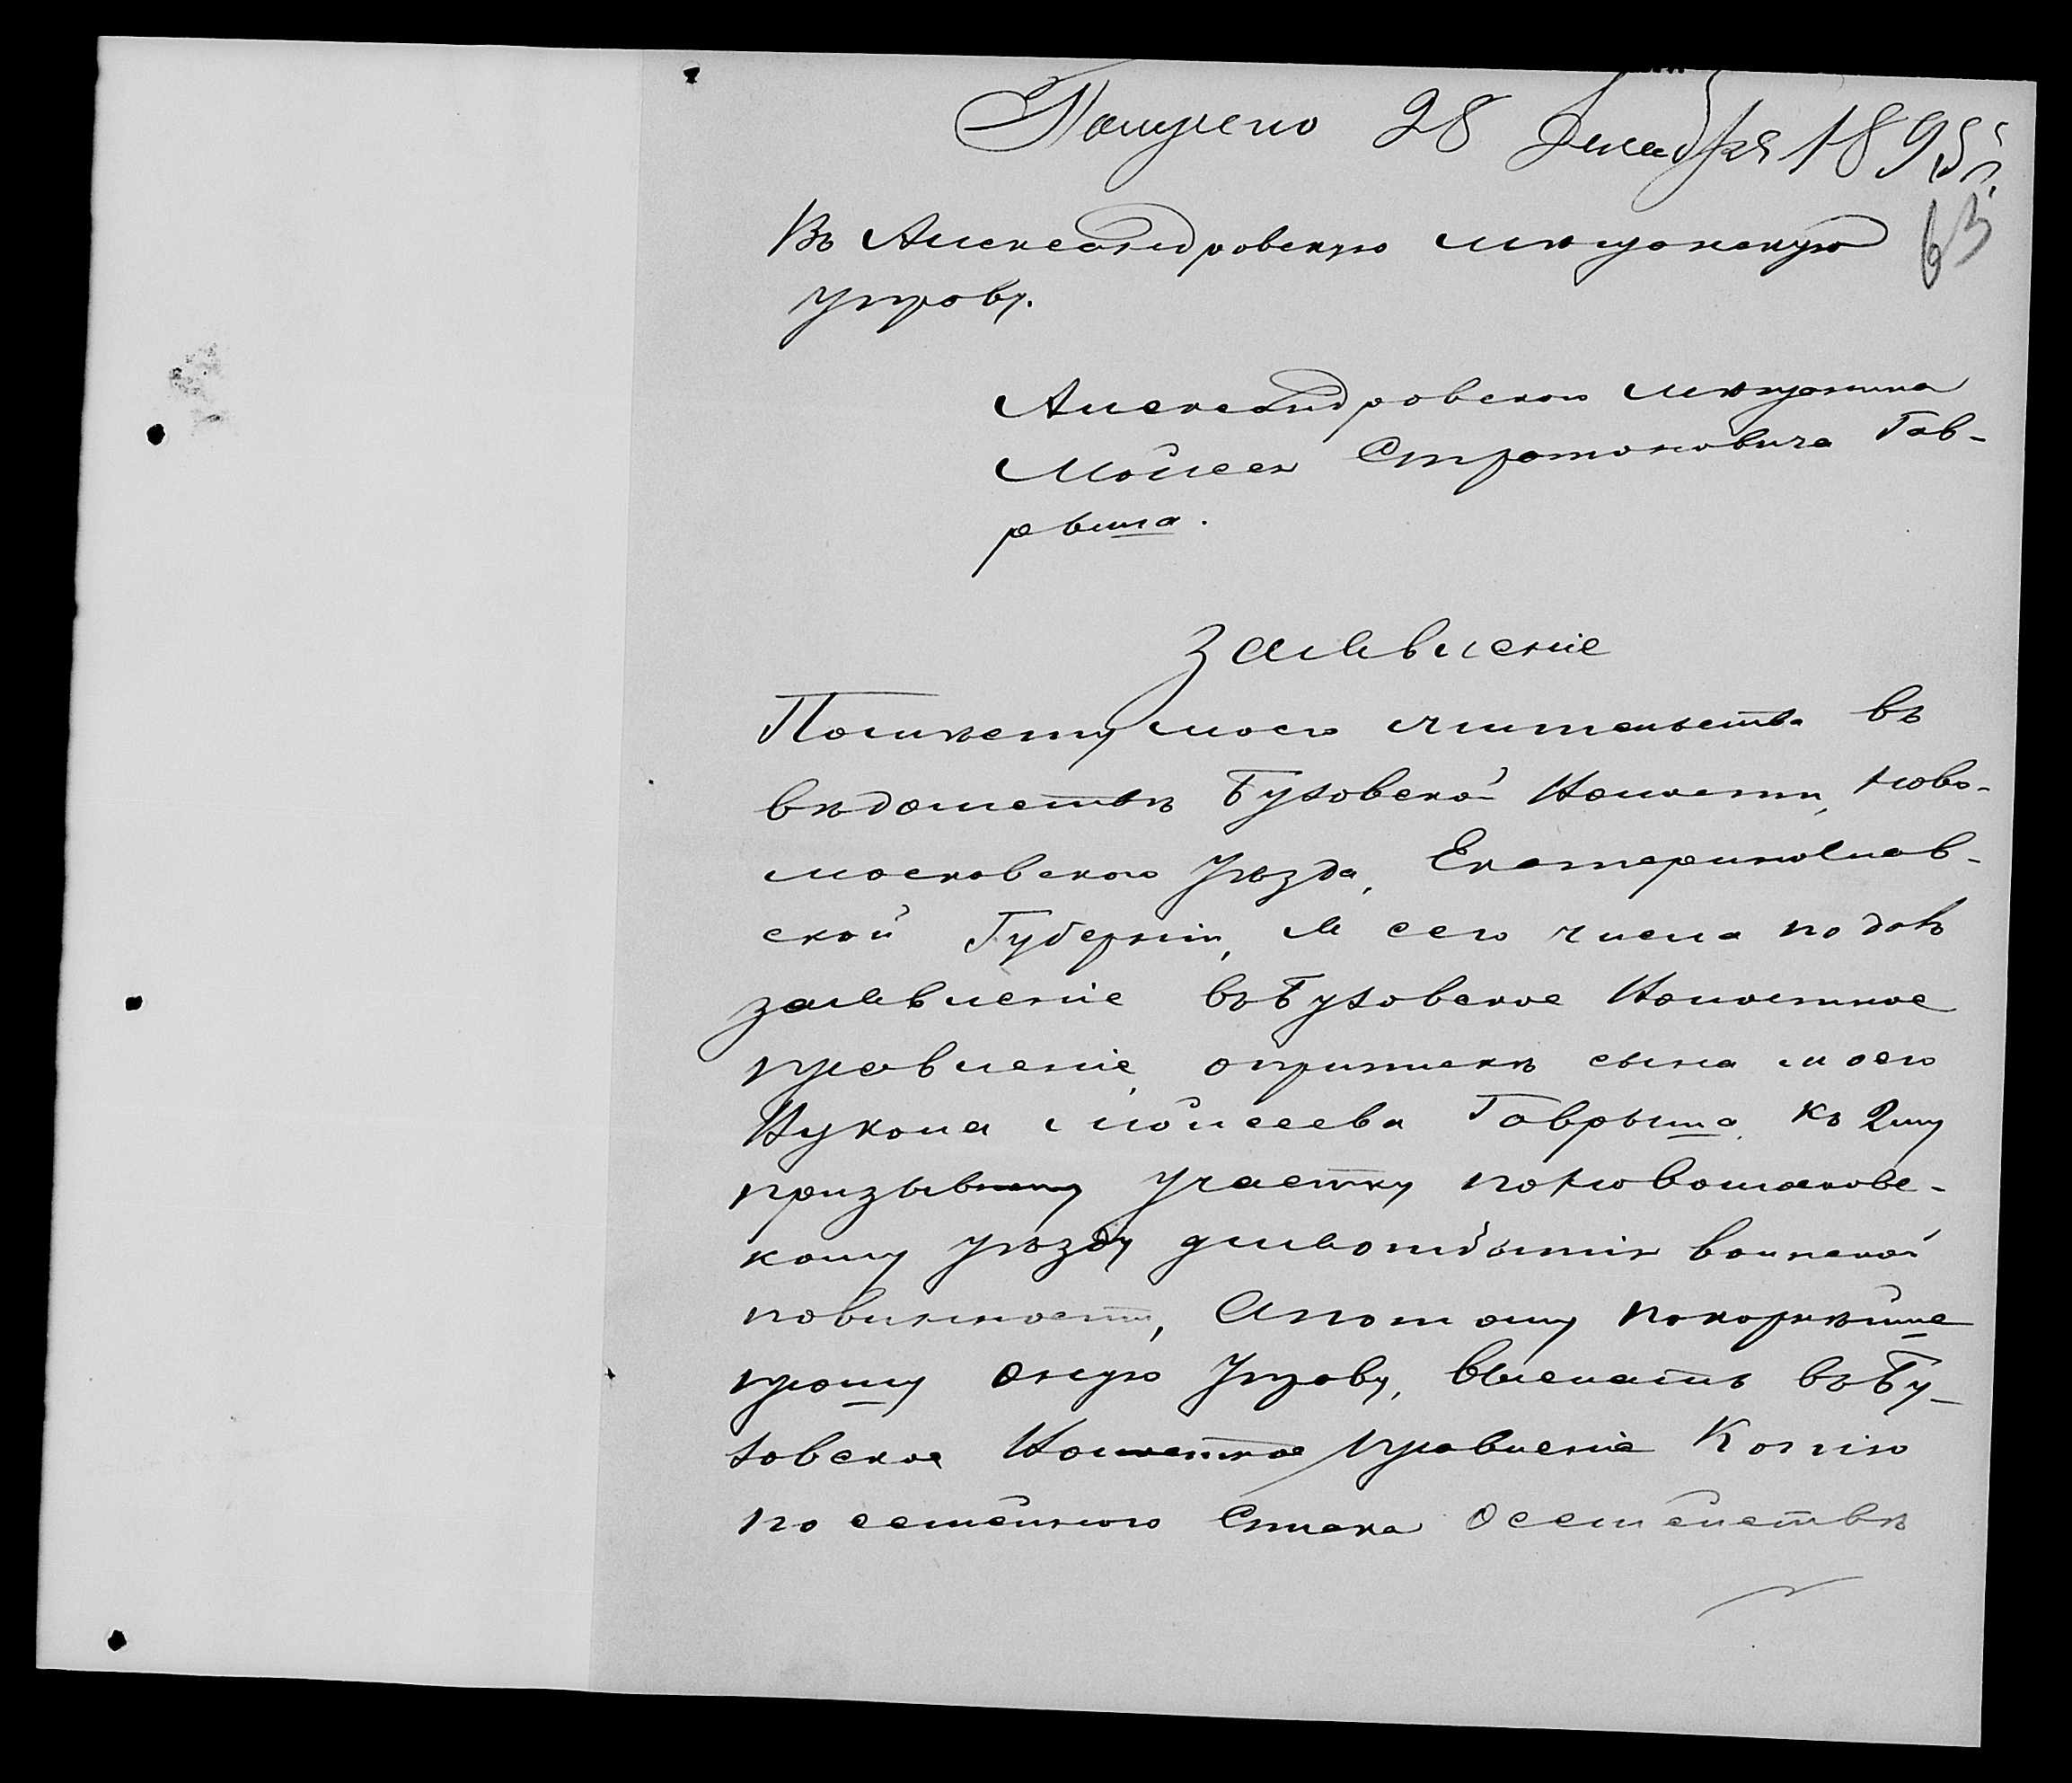 Получено 28 Декабря 1895 г.
63
Въ Александровскую мѣщанскую
управу.
Александровскаго мѣщанина
Мойсея Стратоновича Гав-
рыша.
Заявленіе
По симѣсту моего жительства въ
вѣдомствѣ Бузовской Волости, Ново-
московскаго Уѣзда, Екатеринослав-
ской Губерніи, я сего числа подавъ
заявленіе въ Бузовское Волостное
правленіе, о припискѣ сына моего
Вукола Мойсеева Гаврыша, къ 2му
призывному участку по Новомосковс-
кому уѣзду для отбытія воинской
повинности, А потому покорнѣйше
прошу оную Управу, выслать въ Бу-
зовское Волостное правленіе Копію
посемейнаго Списка о семействѣ